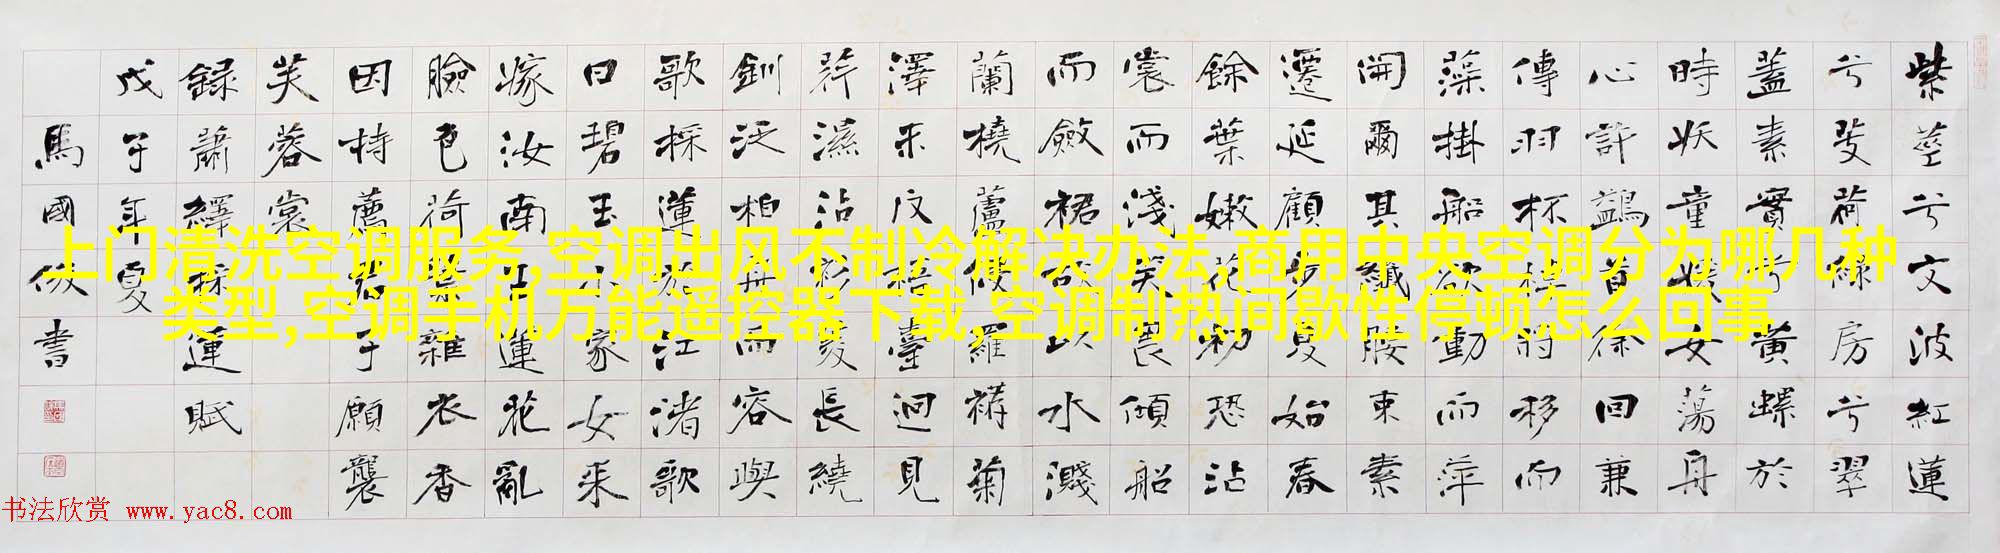 紫莖兮文波紅蓮
兮芰荷綠房兮翠
蓋素實兮黃螺於
時妖童媛女蕩舟
心許鷁首徐回兼
傳羽杯棹將移而
藻掛船欲動而萍
開爾其纖腰束素
遷延顧步夏始春
餘葉嫩花初恐沾
裳而淺笑畏傾船
而斂裾故以水濺
蘭橈蘆側羅䙓菊
澤未反梧臺迥見
荇濕沾衫菱長繞
釧泛柏舟而容與
歌採蓮於江渚歌
曰碧玉小家女來
嫁汝南王蓮花亂
臉色荷葉雜衣香
因持薦君子願襲
芙蓉裳
錄蕭繹採蓮賦
戊子年夏
馬國俶書
上门清洗空调服务,空调出风不制冷解决办法,商用中央空调分为哪几种
类型,空调手机万能遥控器下载,空调制热间歇性停顿怎么回事
书法欣赏 www.yac8.com